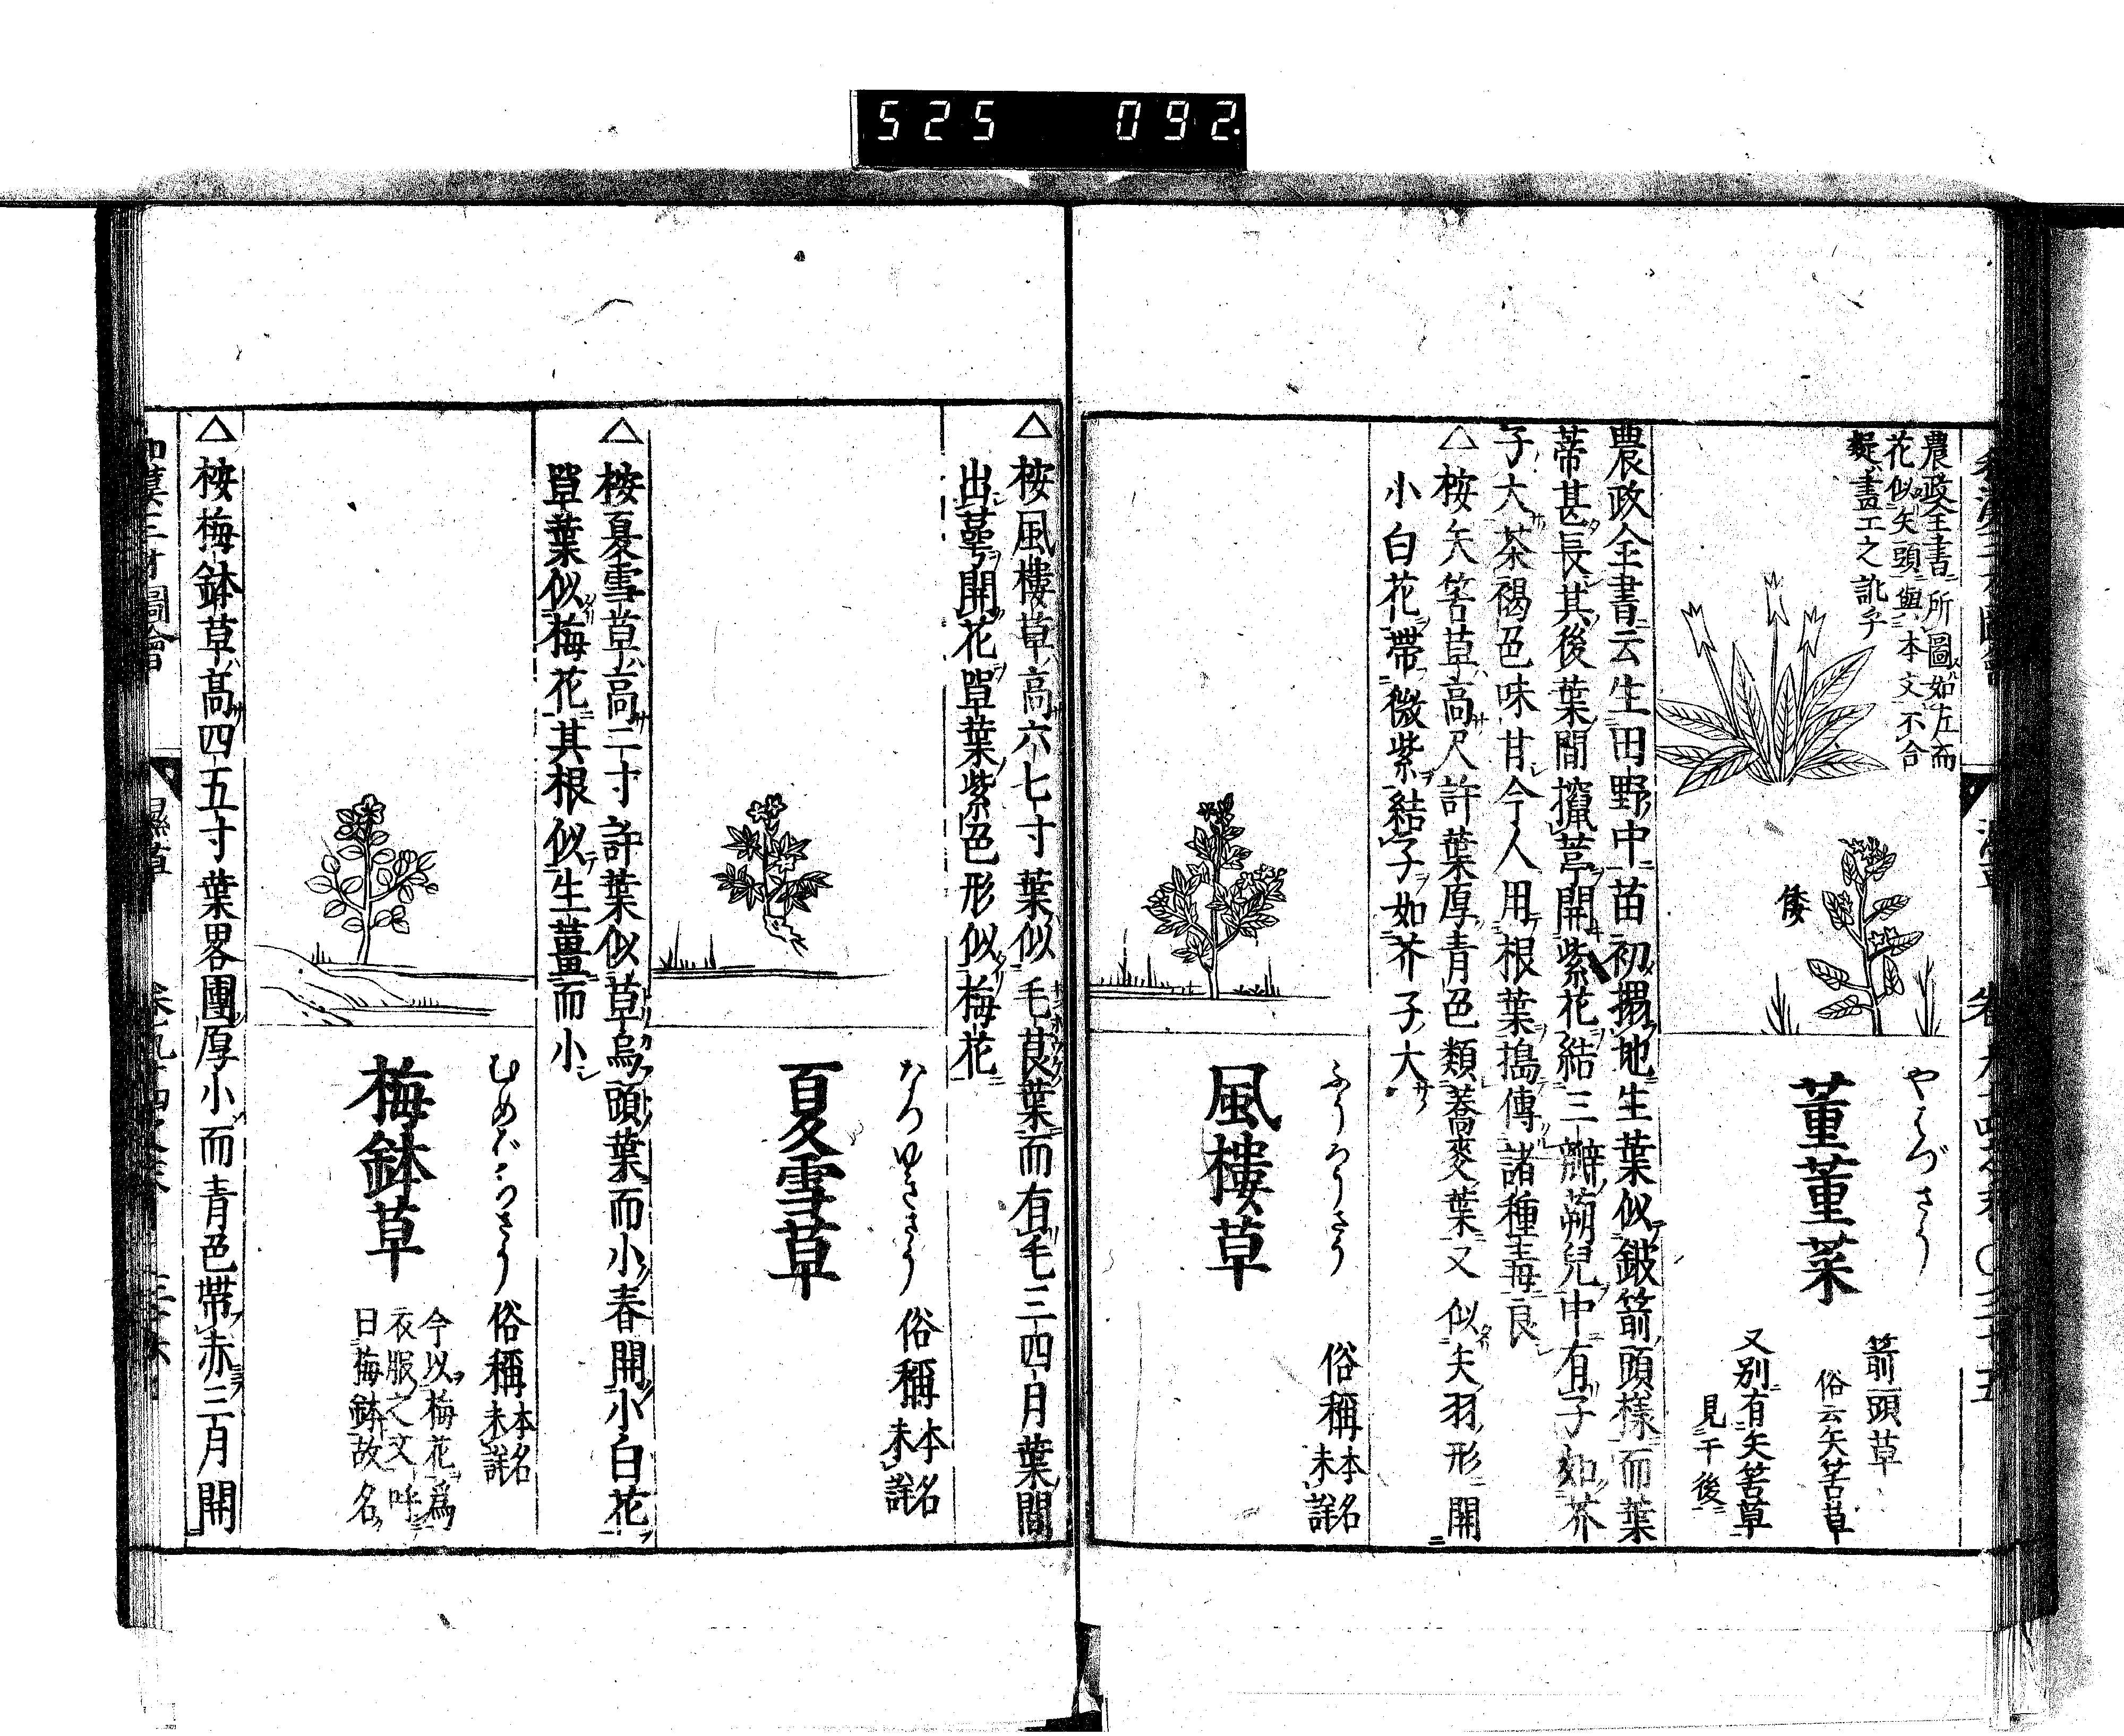 525 092
農政全書所圖如左而
花似矢頭與本文不合
疑畫工之訛乎
倭
やはづさう
菫菫菜
箭頭草
俗云矢筈草
又別有矢筈草
見于後
農政全書云生田野中苗初搨地生葉似鈹箭頭樣而葉
蒂甚長其後葉間攛葶開紫花結三瓣蒴兒中有子如芥
子大茶褐色味甘今人用根葉搗傅諸種毒良
△按矢筈草高尺許葉厚青色類蕎麥葉又似矢羽形開
小白花帶微紫結子如芥子大
ふうろさう
風樓草
俗稱
本名
未詳
△按風樓草高六七寸葉似毛茛葉而有毛三四月葉間
出萼開花單葉紫色形似梅花
なつゆきさう
夏雪草
俗稱
本名
未詳
△按夏雪草高二寸許葉似草烏頭葉而小春開小白花
單葉似梅花其根似生薑而小
むめばちさう
梅鉢草
俗稱
本名
未詳
今以梅花爲
衣服之文呼
曰梅鉢故名
△按梅鉢草高四五寸葉畧團厚小而青色帶赤三月開
和漢三才圖會
濕草